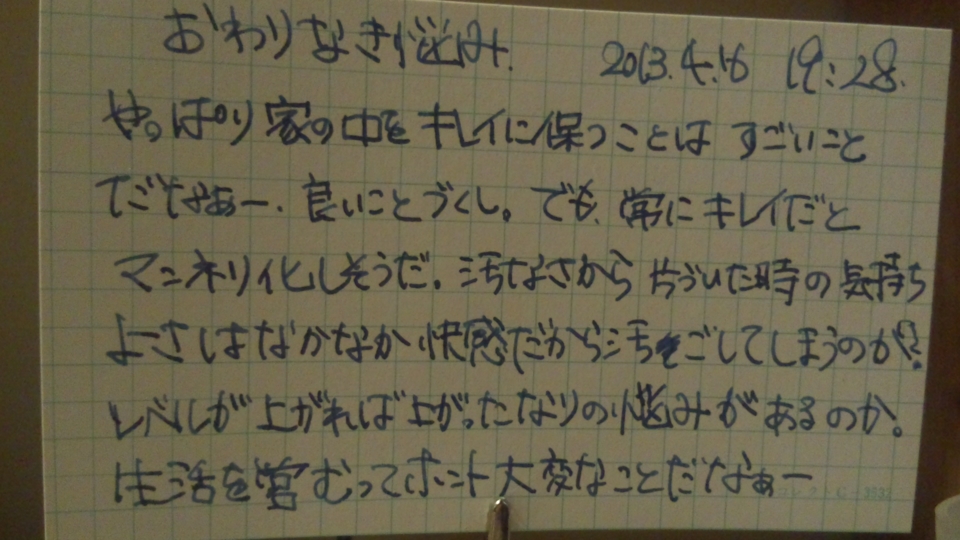 おわりなき悩み. 2013.4.16 19:28.
やっぱり家の中をキレイに保つことは すごいこと
だなぁー. 良いことづくし。でも、常にキレイだと
マンネリ化しそうだ。汚なさから片づいた時の気持ち
よさはなかなか快感だから汚ごしてしまうのか?
レベルが上がれば上がったなりの悩みがあるのか。
生活を営むってホント大変なことだなぁー